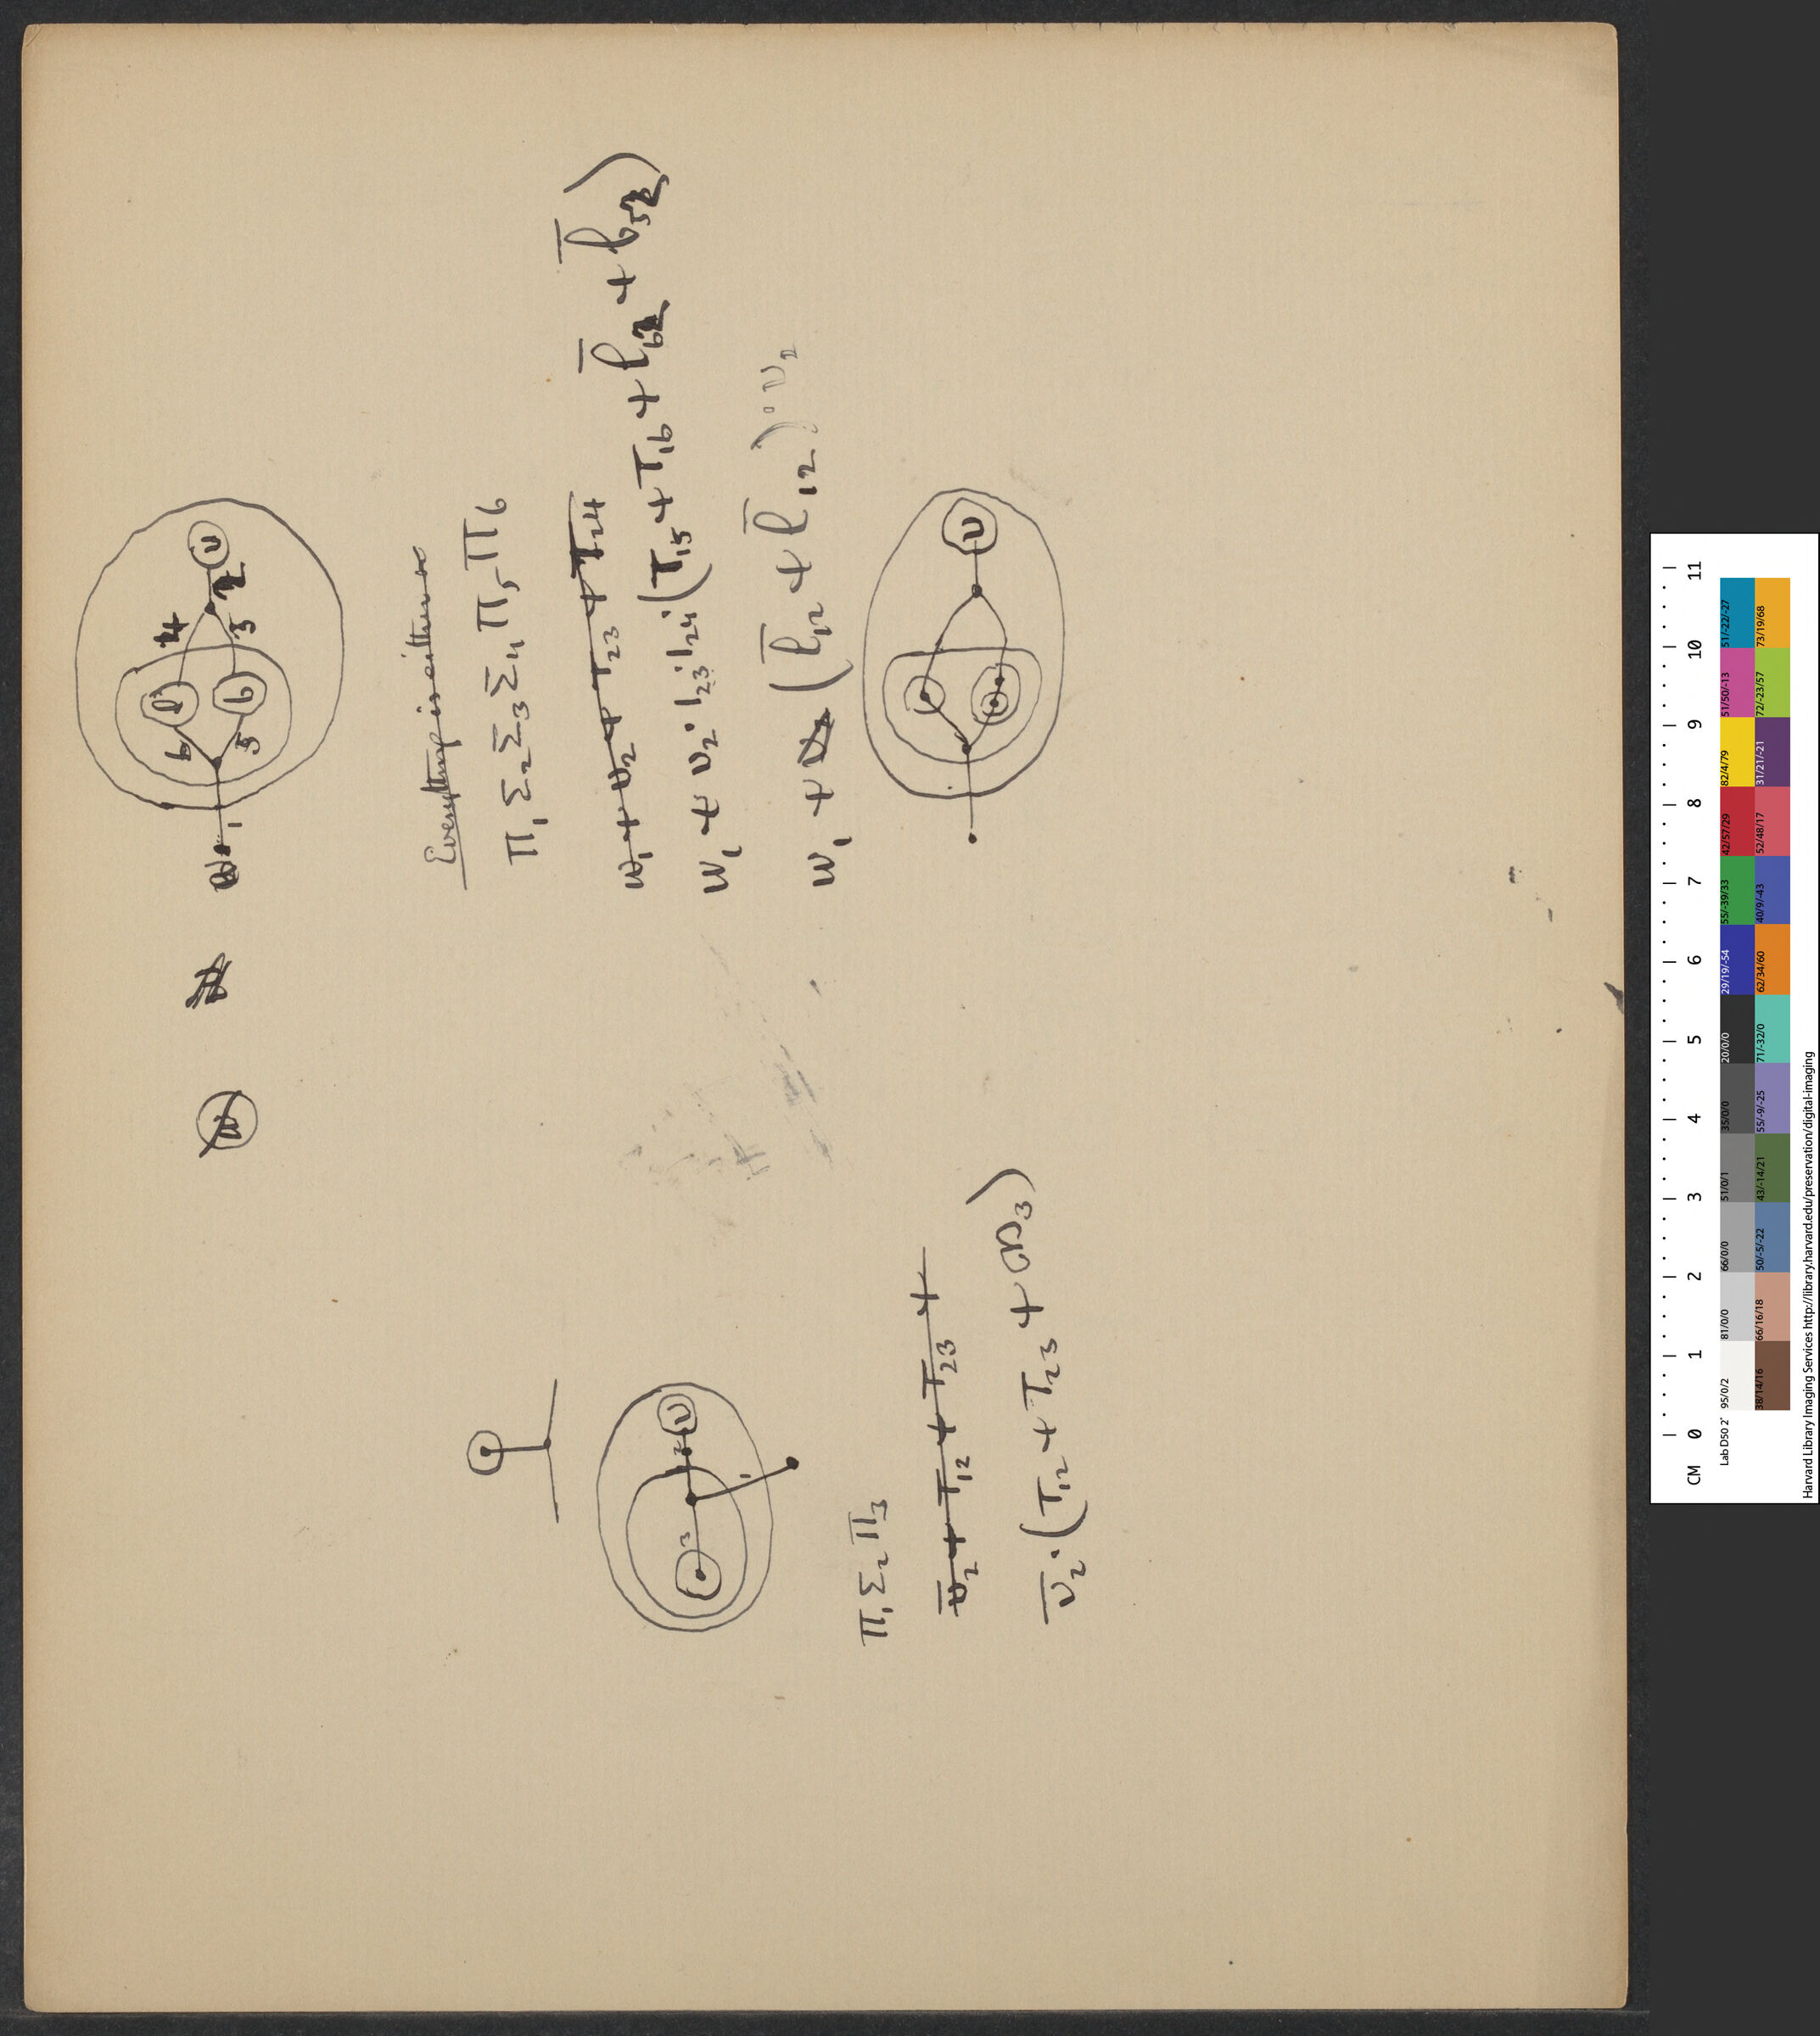 4 2 υ
l b 3
6 5
1
Everything is either a
Π₁Σ₂Σ₃Σ₄Π₅Π₆
w₁ + υ₂ + T₂₃ + T₂₄
w₁ + υ₂·1₂₃·1₂₄·(T₁₅ + T₁₆ + l̅₆₂ + b̅₅₂)
w₁ + (l̅₁₂ + l̅₁₂)·υ₂
υ
3 2 υ
1
Π₁Σ₂Π₃
υ̅₂ + T₁₂ + T₂₃ +
υ̅₂·(T₁₂ + T₂₃ + ₃)
CM 0 1 2 3 4 5 6 7 8 9 10 11
Lab D50 2˚ 95/0/2 81/0/0 66/0/0 51/0/1 35/0/0 20/0/0 29/19/-54 55/-39/33 42/57/29 82/4/79 51/50/-13 51/-22/-27
38/14/16 66/16/18 50/-5/-22 43/-14/21 55/-9/-25 71/-32/0 62/34/60 40/9/-43 52/48/17 31/21/-21 72/-23/57 73/19/68
Harvard Library Imaging Services http://library.harvard.edu/preservation/digital-imaging